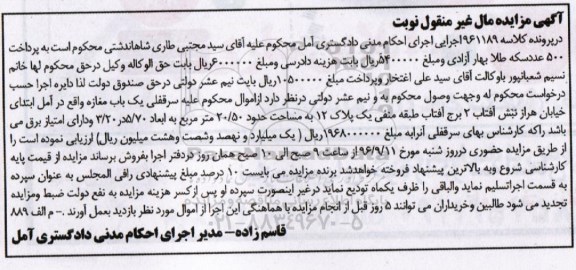 آگهی مزایده مال غیر منقول نوبت
درپرونده کلاسه ۹۶۱۱۸۹اجرایی اجرای احکام مدنی دادگستری آمل محکوم علیه آقای سید مجتبی طاری شاهاندشتی محکوم است به پرداخت
۵۰۰ عددسکه طلا بهار آزادی ومبلغ ۵۴۰۰۰۰۰ریال بابت هزینه دادرسی ومبلغ ۶۰۰۰۰۰۰ریال بابت حق الوکاله وکیل درحق محکوم لها خانم
نسیم شعبانپور باوکالت آقای سید علی اغتخار وپرداخت مبلغ ۱۰۵۰۰۰۰۰ریال بابت نیم عشر دولتی درحق صندوق دولت لذا دایره اجرا حسب
درخواست محکوم له وجهت وصول محکوم به و نیم عشر دولتی درنظر دارد ازاموال محکوم علیه سرقفلی یک باب مغازه واقع در آمل ابتدای
خیابان هراز نبش آفتاب ۲ برج آفتاب طبقه منفی یک پلاک ۱۲ به مساحت حدود ۲۰/۵۰ متر مربع به ابعاد ۵/۷۰در۳/۲۰ ودارای امتیاز برق می
باشد راکه کارشناس بهای سرقفلی آنرابه مبلغ ۱۹۶۸۰۰۰۰۰۰ریال ( یک میلیارد و نهصد وشصت وهشت میلیون ریال) ارزیابی نموده است را
از طریق مزایده حضوری درروز شنبه مورخ ۹۶/۹/۱۱از ساعت ۹ صبح الی ۱۰ صبح همان روز دردفتر اجرا بفروش برساند مزایده از قیمت پایه
کارشناسی شروع وبه بالاترین پیشنهاد فروخته خواهدشد برنده مزایده می بایست ۱۰ درصد مبلغ پیشنهادی رافی المجلس به عنوان سپرده
به قسمت اجراتسلیم نماید والباقی را ظرف یکماه تودیع نماید درغیر اینصورت سپرده او پس ازکسر هزینه مزایده به نفع دولت ضبط ومزایده
تجدید می شود طالبین وخریداران می توانند ۵ روز قبل از انجام مزایده با هماهنگی این اجرا از اموال مورد نظر بازدید بعمل آورند .- م الف ۸۸۹
قاسم زاده – مدیر اجرای احکام مدنی دادگستری آمل